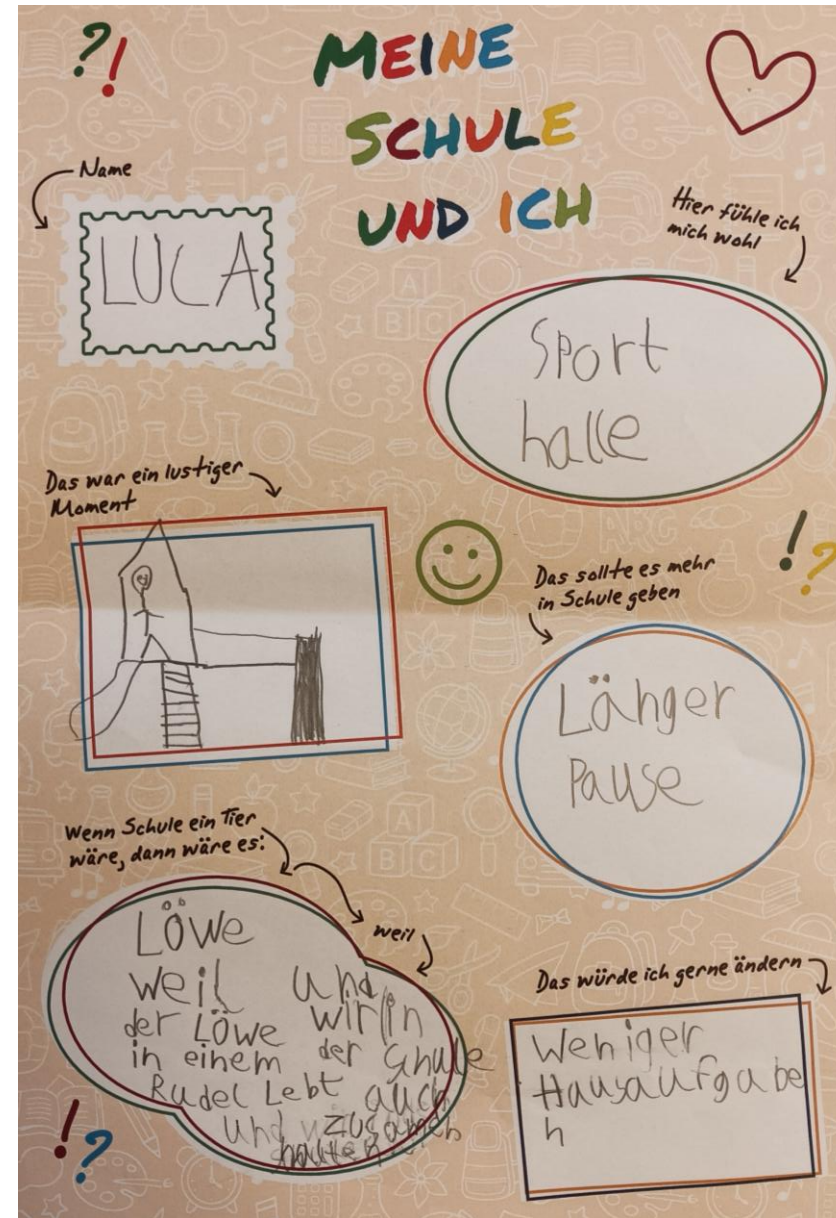 ?!
MEINE
SCHULE
UND ICH
Name
LUCA
Hier fühle ich
mich wohl
Sport
halle
Das war ein lustiger
Moment
!?
Das sollte es mehr
in Schule geben
Länger
Pause
Wenn Schule ein Tier
wäre, dann wäre es:
weil
Löwe
weil
der Löwe
in einem
Rudel Lebt
und
wir in
der Schule
auch
zusamen
halten
Das würde ich gerne ändern
Weniger
Hausaufgabe
n
!?